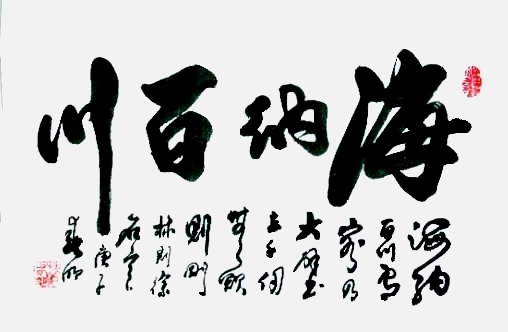 海纳百川
海纳
百川有
容乃
大壁
立千仞
無欲
则刚
林则徐
名言
庚子